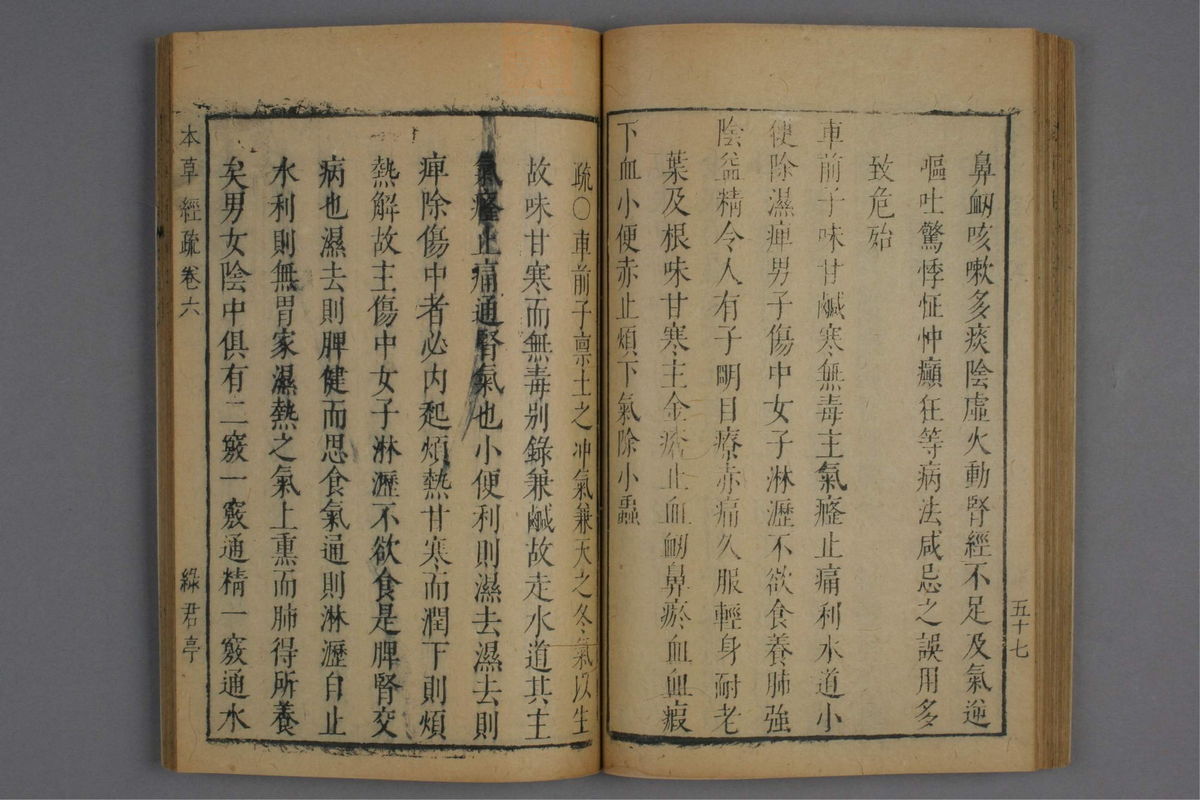 五十七
鼻衂咳嗽多痰陰虛火動腎經不足及氣逆
嘔吐驚悸怔忡癲狂等病法咸忌之誤用多
致危殆
車前子味甘鹹寒無毒主氣癃止痛利水道小
便除濕痺男子傷中女子淋瀝不欲食養肺強
陰益精令人有子明目療赤痛久服輕身耐老
葉及根味甘寒主金瘡止血衂鼻瘀血血瘕
下血小便赤止煩下氣除小蟲
疏〇車前子禀土之冲氣兼天之冬氣以生
故味甘寒而無毒别錄兼鹹故走水道其主
氣癃止痛通腎氣也小便利則濕去濕去則
痺除傷中者必内起煩熱甘寒而潤下則煩
熱解故主傷中女子淋瀝不欲食是脾腎交
病也濕去則脾健而思食氣通則淋瀝自止
水利則無胃家濕熱之氣上熏而肺得所養
矣男女陰中俱有二竅一竅通精一竅通水
本草經疏卷六
綠君亭